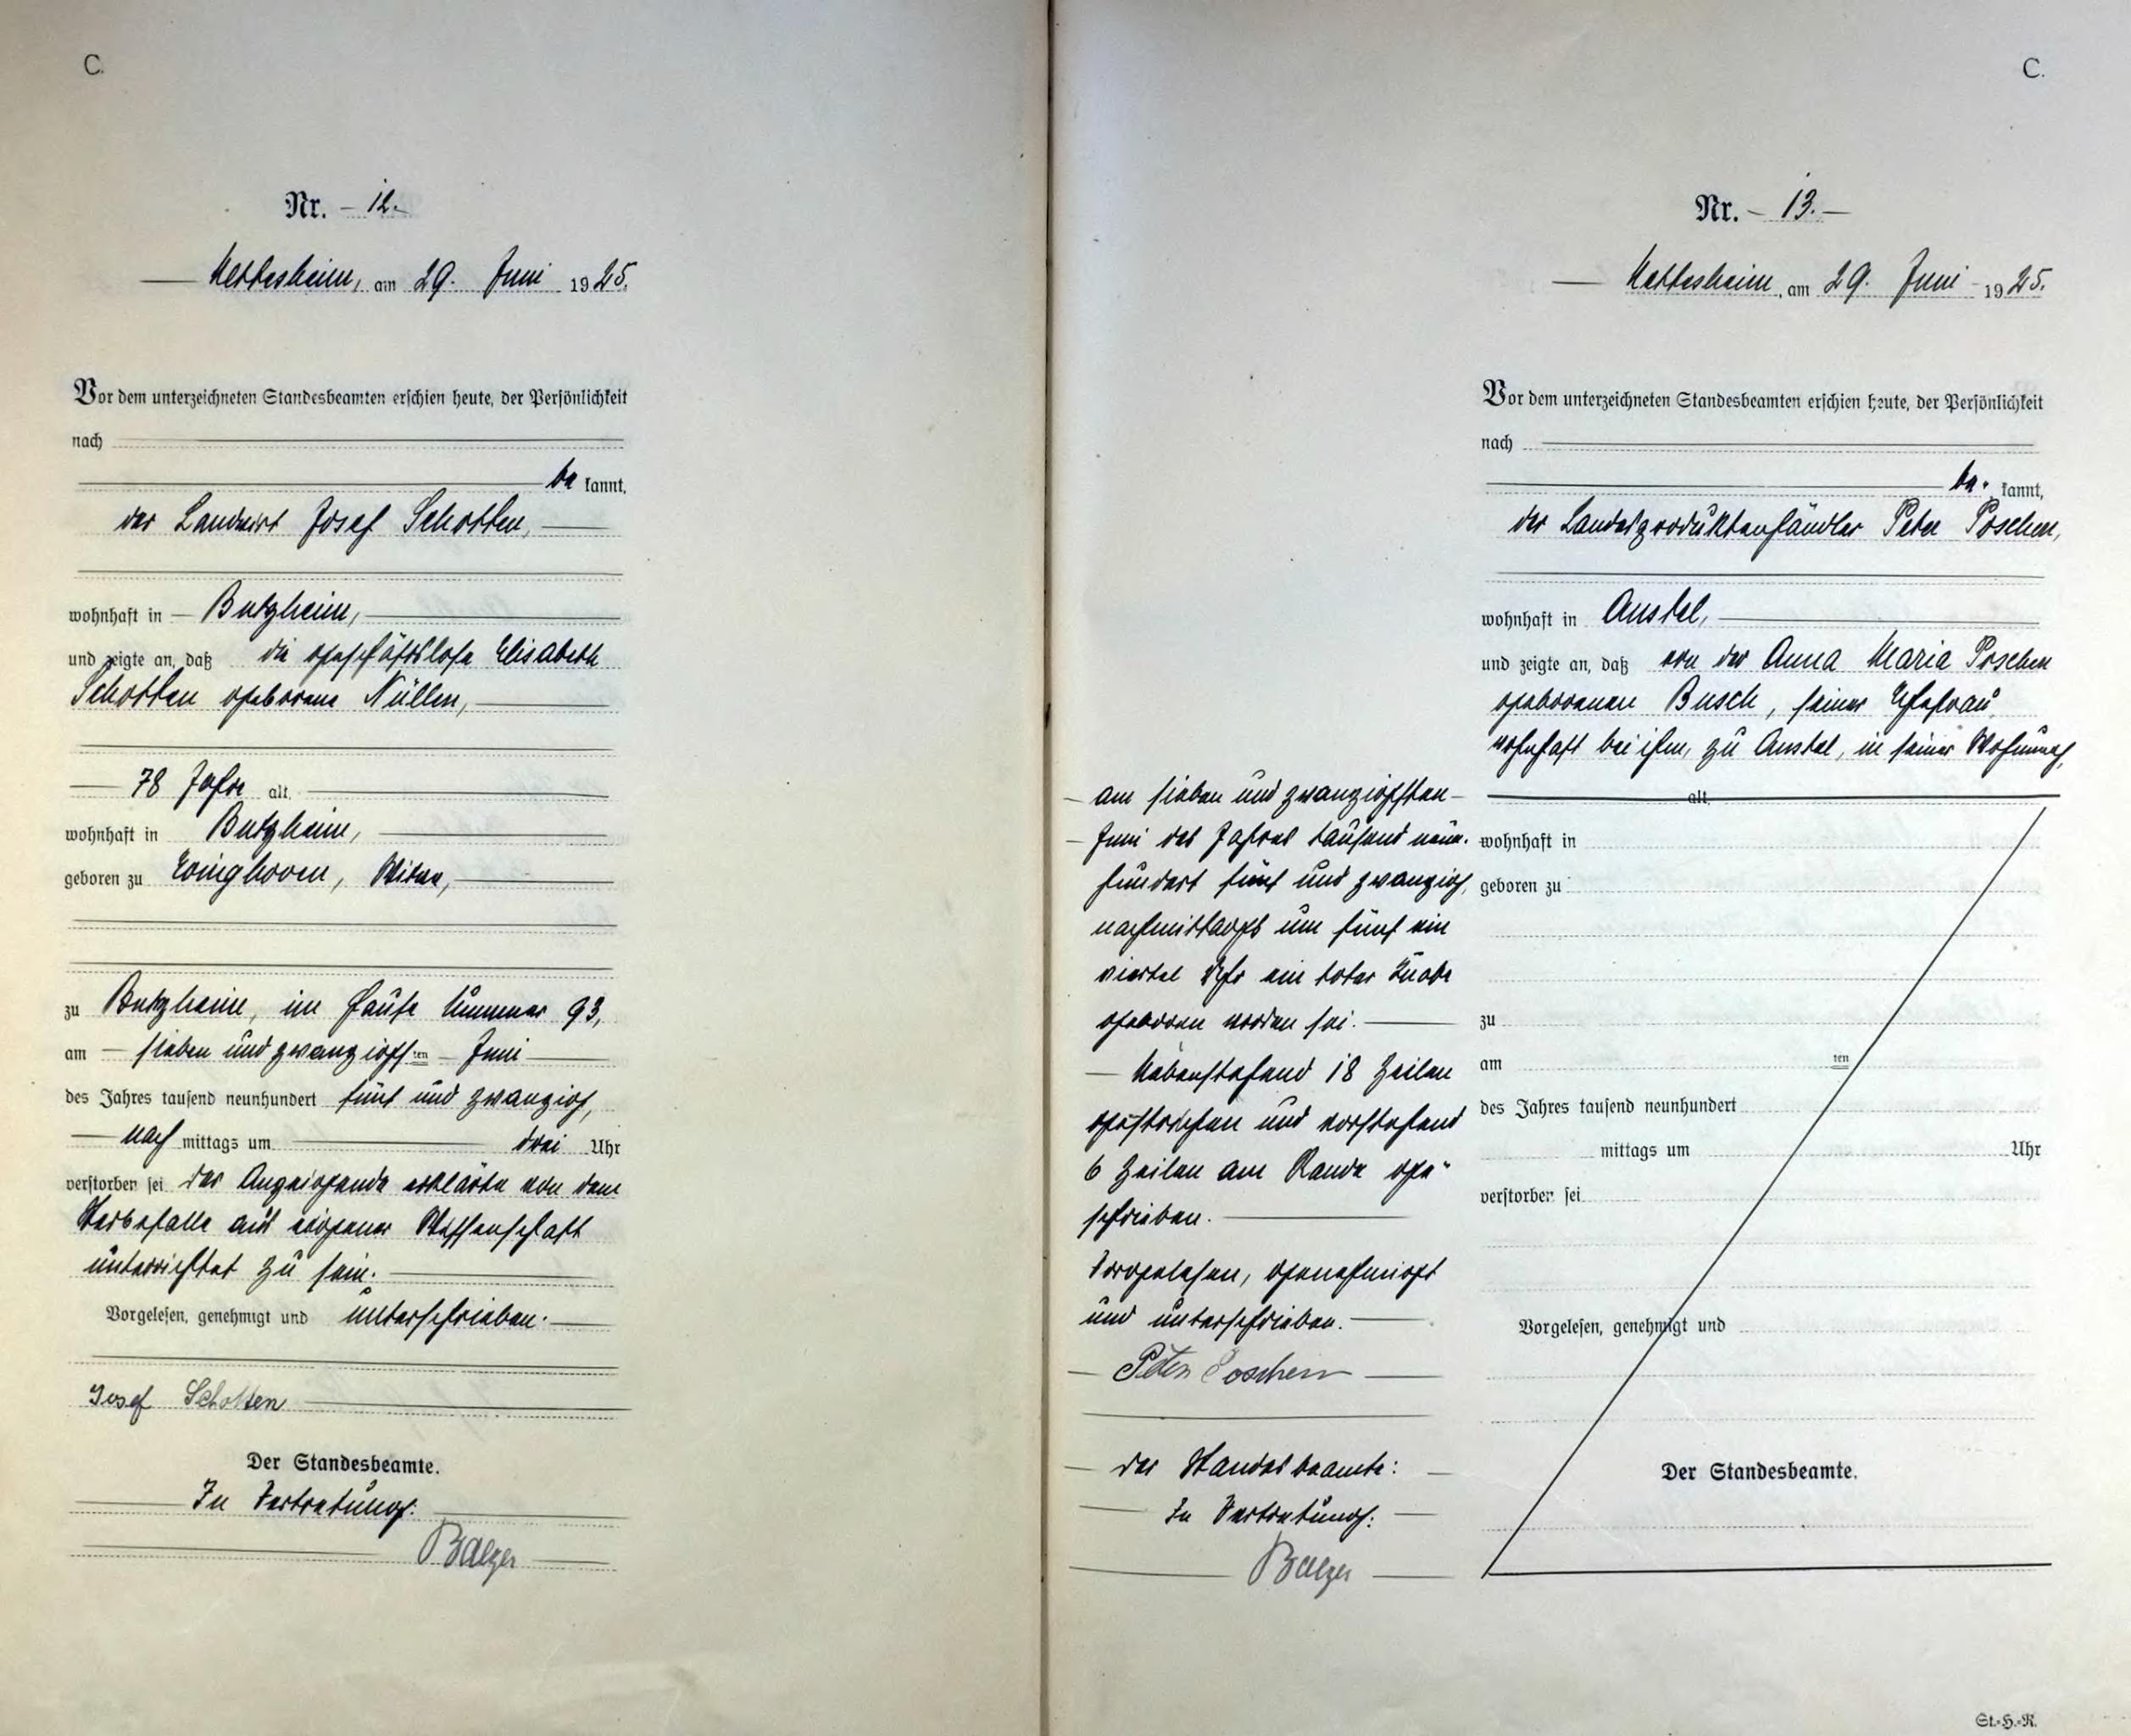 C.
Nr. – 12. –
Nettesheim, am 29. Juni 1925.
Vor dem unterzeichneten Standesbeamten erschien heute, der Persönlichkeit
nach
be kannt,
der Landwirt Josef Schotten,
wohnhaft in Butzheim,
und zeigte an, daß die geschäftslose Elisabeth
Schotten geborene Nüllen,
78 Jahre alt,
wohnhaft in Butzheim,
geboren zu Hoinghoven, Witwe,
zu Butzheim, im Hause Nummer 93,
am sieben und zwanzigsten Juni
des Jahres tausend neunhundert fünf und zwanzig,
nach mittags um drei Uhr
verstorben sei der Anzeigende erklärte von dem
Sterbefalle aus eigener Wissenschaft
unterrichtet zu sein.
Vorgelesen, genehmigt und unterschrieben.
Josef Schotten
Der Standesbeamte.
In Vertretung:
Balzer
C.
Nr. – 13. –
Nettesheim, am 29. Juni 1925.
Vor dem unterzeichneten Standesbeamten erschien heute, der Persönlichkeit
nach
be- kannt,
der Landesproduktenhändler Peter Poschen,
wohnhaft in Anstel,
und zeigte an, daß von der Anna Maria Poschen
geborenen Busch, seiner Ehefrau,
wohnhaft bei ihm, zu Anstel, in seiner Wohnung,
alt,
am sieben und zwanzigsten
Juni des Jahres tausend neun-
hundert fünf und zwanzig,
nachmittags um fünf ein
viertel Uhr ein toter Knabe
geboren worden sei.
Nebenstehend 18 Zeilen
gestrichen und vorstehend
6 Zeilen am Rande ge-
schrieben.
Vorgelesen, genehmigt
und unterschrieben.
Peter Poschen
Der Standesbeamte:
In Vertretung:
Balzer
wohnhaft in
geboren zu
zu
am ten
des Jahres tausend neunhundert
mittags um Uhr
verstorben sei
Vorgelesen, genehmigt und
Der Standesbeamte.
St.-H.-R.